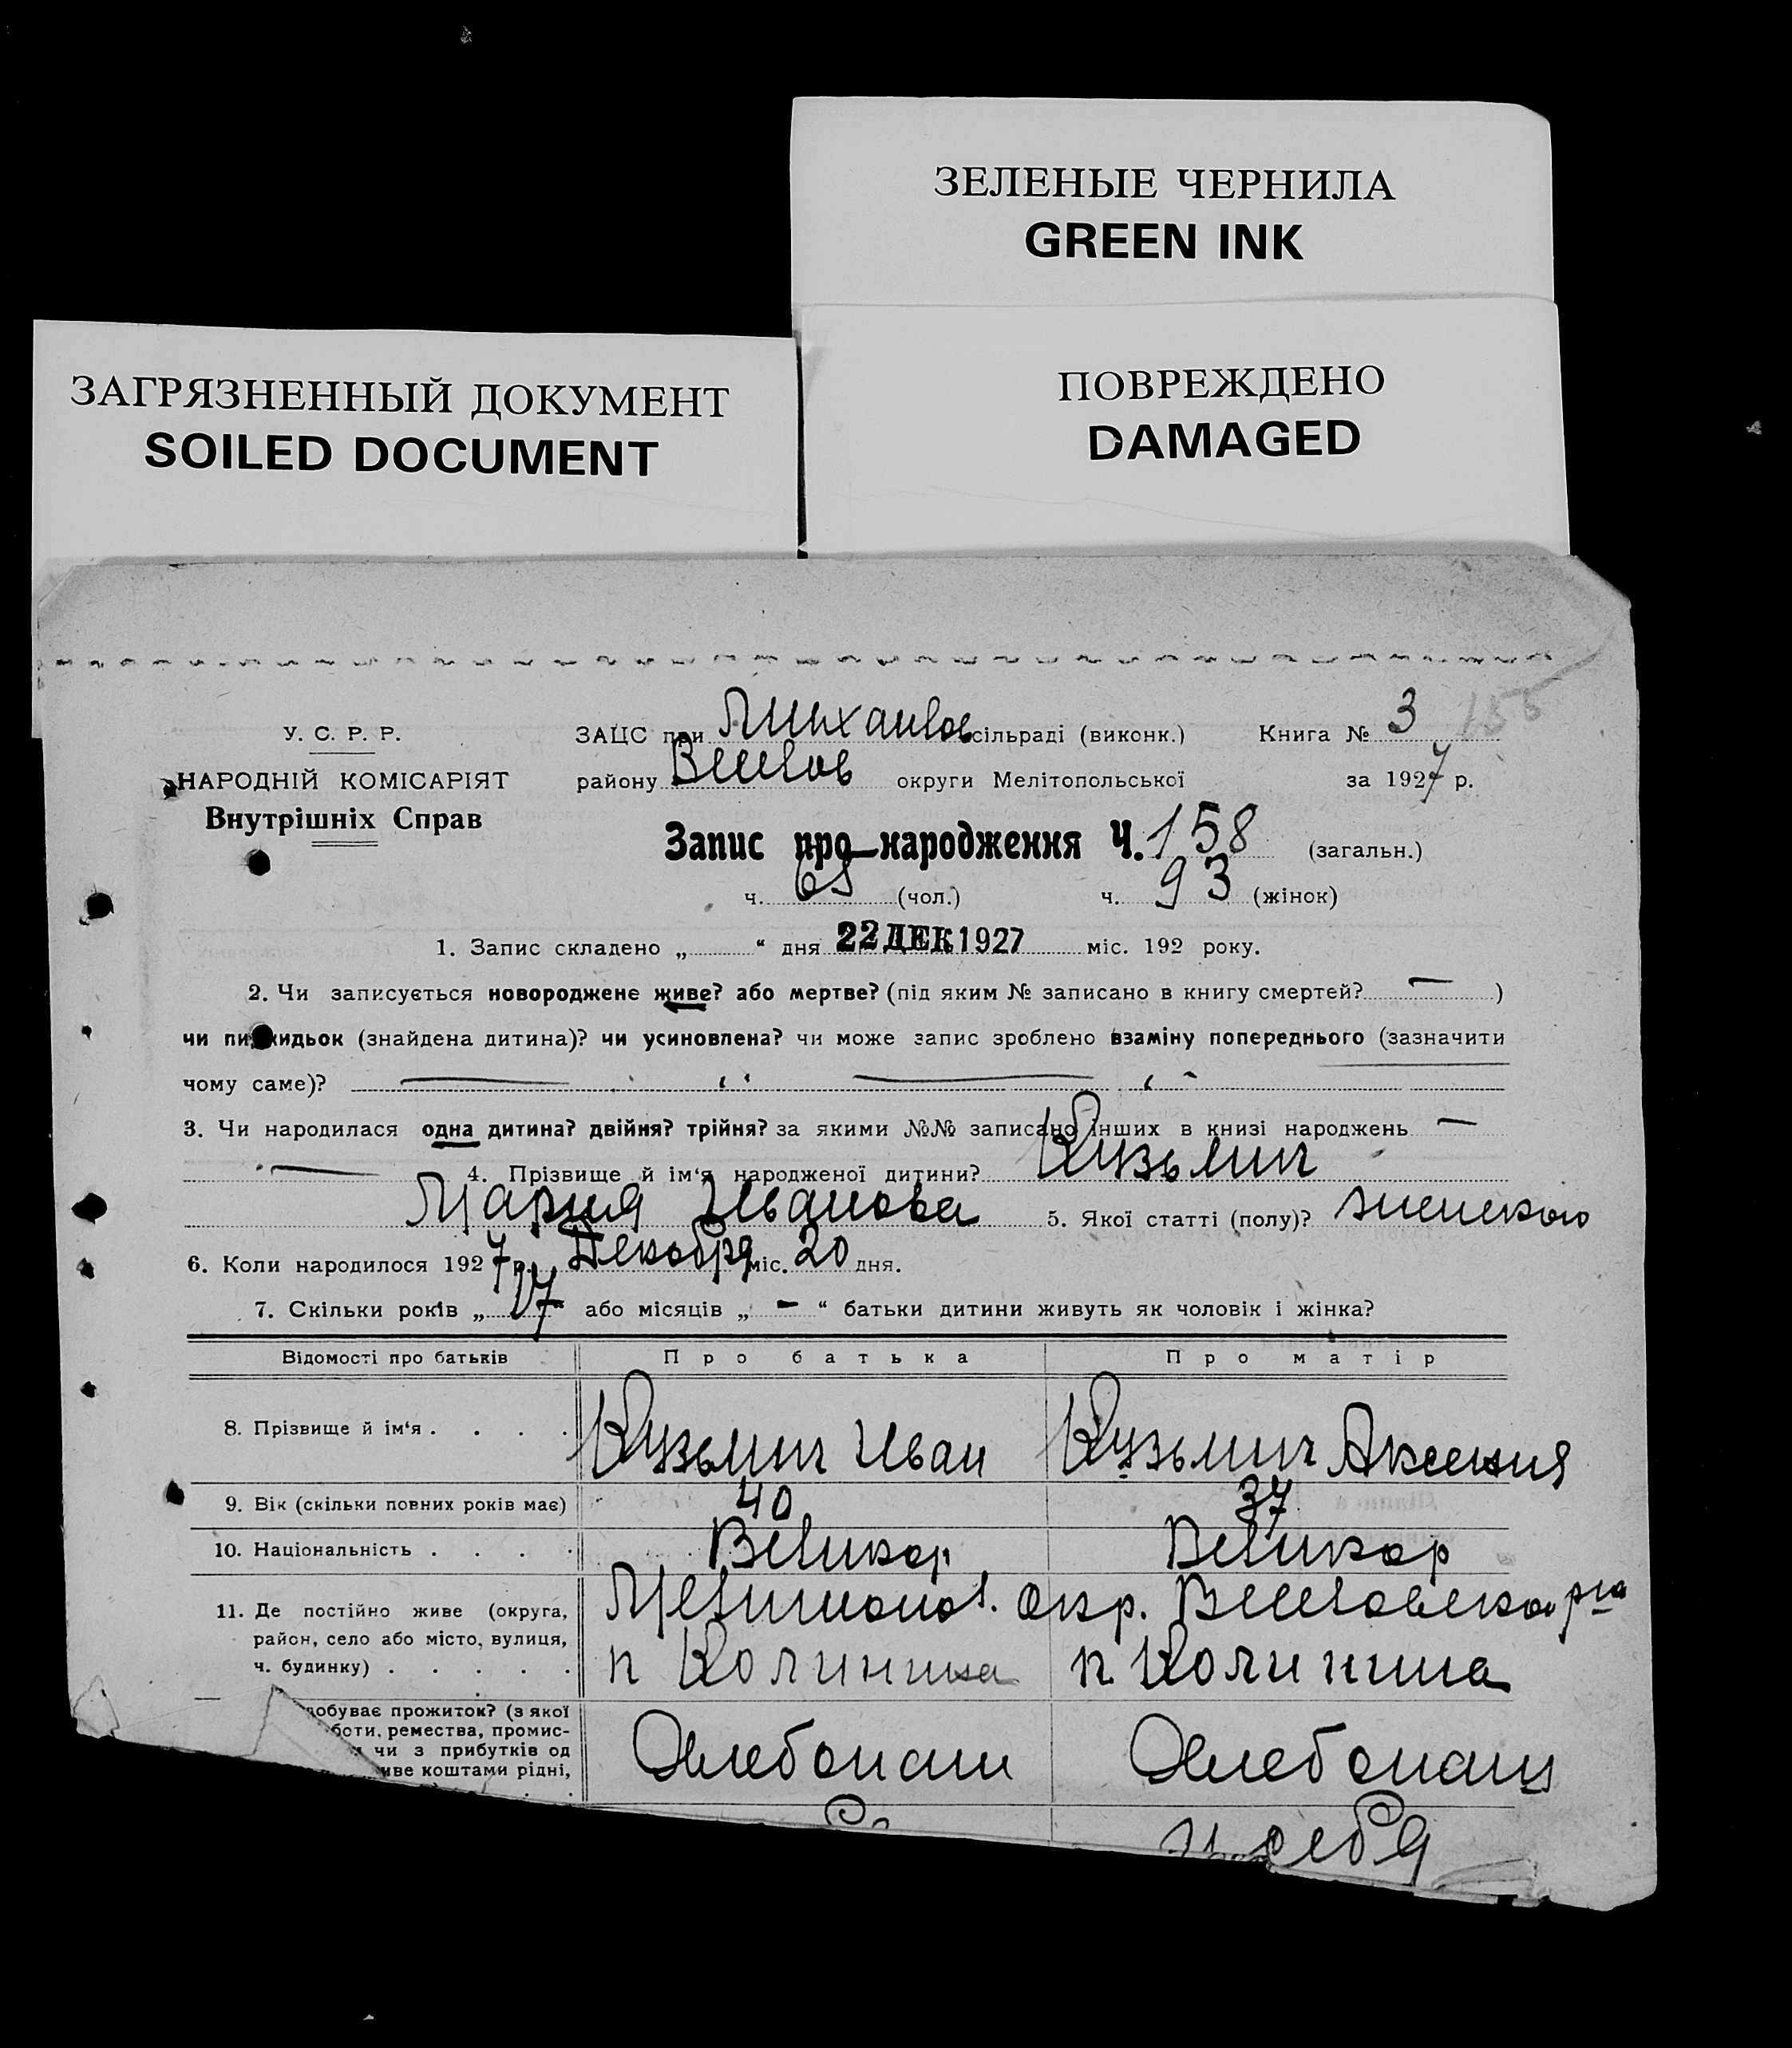 ЗЕЛЕНЫЕ ЧЕРНИЛА
GREEN INK
ЗАГРЯЗНЕННЫЙ ДОКУМЕНТ
SOILED DOCUMENT
ПОВРЕЖДЕНО
DAMAGED
У. С. Р. Р.
НАРОДНІЙ КОМІСАРІЯТ
Внутрішніх Справ
ЗАЦС при Михайлов сільраді (виконк.) Книга № 3 155
району Веселов округи Мелітопольської за 1927 р.
Запис про народження Ч. 158 (загальн.)
ч. 65 (чол.) ч. 93 (жінок)
1. Запис складено „ “ дня 22 ДЕК 1927 міс. 192 року.
2. Чи записується новороджене живе? або мертве? (під яким № записано в книгу смертей? — )
чи пидкидьок (знайдена дитина)? чи усиновлена? чи може запис зроблено взаміну попереднього (зазначити
чому саме)? —
3. Чи народилася одна дитина? двійня? трійня? за якими №№ записано інших в книзі народжень —
— 4. Прізвище й ім‘я народженої дитини? Кузьмич
Мария Иванова 5. Якої статті (полу)? женского
6. Коли народилося 1927 р. Декабря міс. 20 дня.
7. Скільки років „ 17 “ або місяців „ - “ батьки дитини живуть як чоловік і жінка?
Відомості про батьків Про батька Про матір
8. Прізвище й ім‘я . . . . Кузьмич Иван Кузьмич Аксения
9. Вік (скільки повних років має) 40 37
10. Національність . . . . Великор Великор
11. Де постійно живе (округа, Мелитопол. окр. Веселовского р-на
район, село або місто, вулиця,
ч. будинку) . . . . . п Колинина п. Колинина
добуває прожиток? (з якої
боти, ремества, промис-
чи з прибутків од Хлебопаш Хлебопащ
иве коштами рідні,
себя